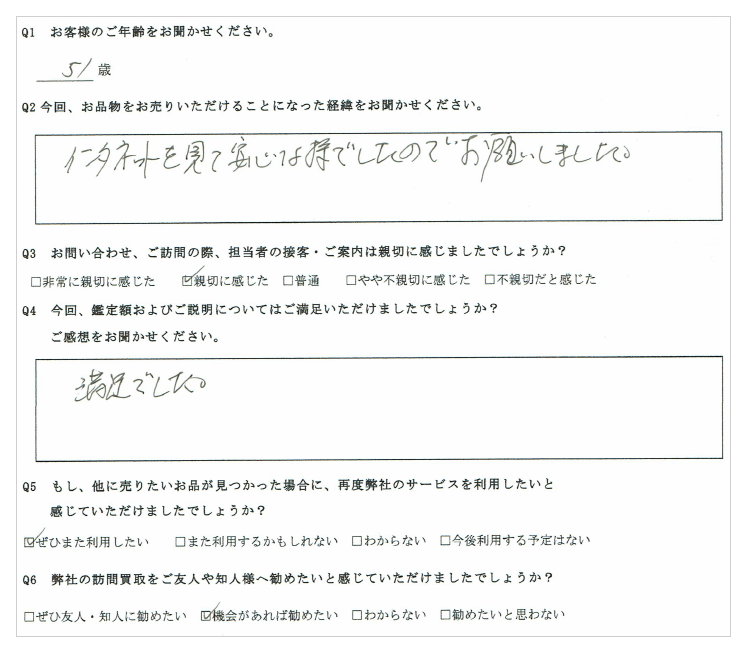 Q1 お客様のご年齢をお聞かせください。
51 歳
Q2 今回、お品物をお売りいただけることになった経緯をお聞かせください。
インタネットを見て安心な様でしたのでお願いしました。
Q3 お問い合わせ、ご訪問の際、担当者の接客・ご案内は親切に感じましたでしょうか？
□非常に親切に感じた ☑親切に感じた □普通 □やや不親切に感じた □不親切だと感じた
Q4 今回、鑑定額およびご説明についてはご満足いただけましたでしょうか？
ご感想をお聞かせください。
満足でした。
Q5 もし、他に売りたいお品が見つかった場合に、再度弊社のサービスを利用したいと
感じていただけましたでしょうか？
☑ぜひまた利用したい □また利用するかもしれない □わからない □今後利用する予定はない
Q6 弊社の訪問買取をご友人や知人様へ勧めたいと感じていただけましたでしょうか？
□ぜひ友人・知人に勧めたい ☑機会があれば勧めたい □わからない □勧めたいと思わない